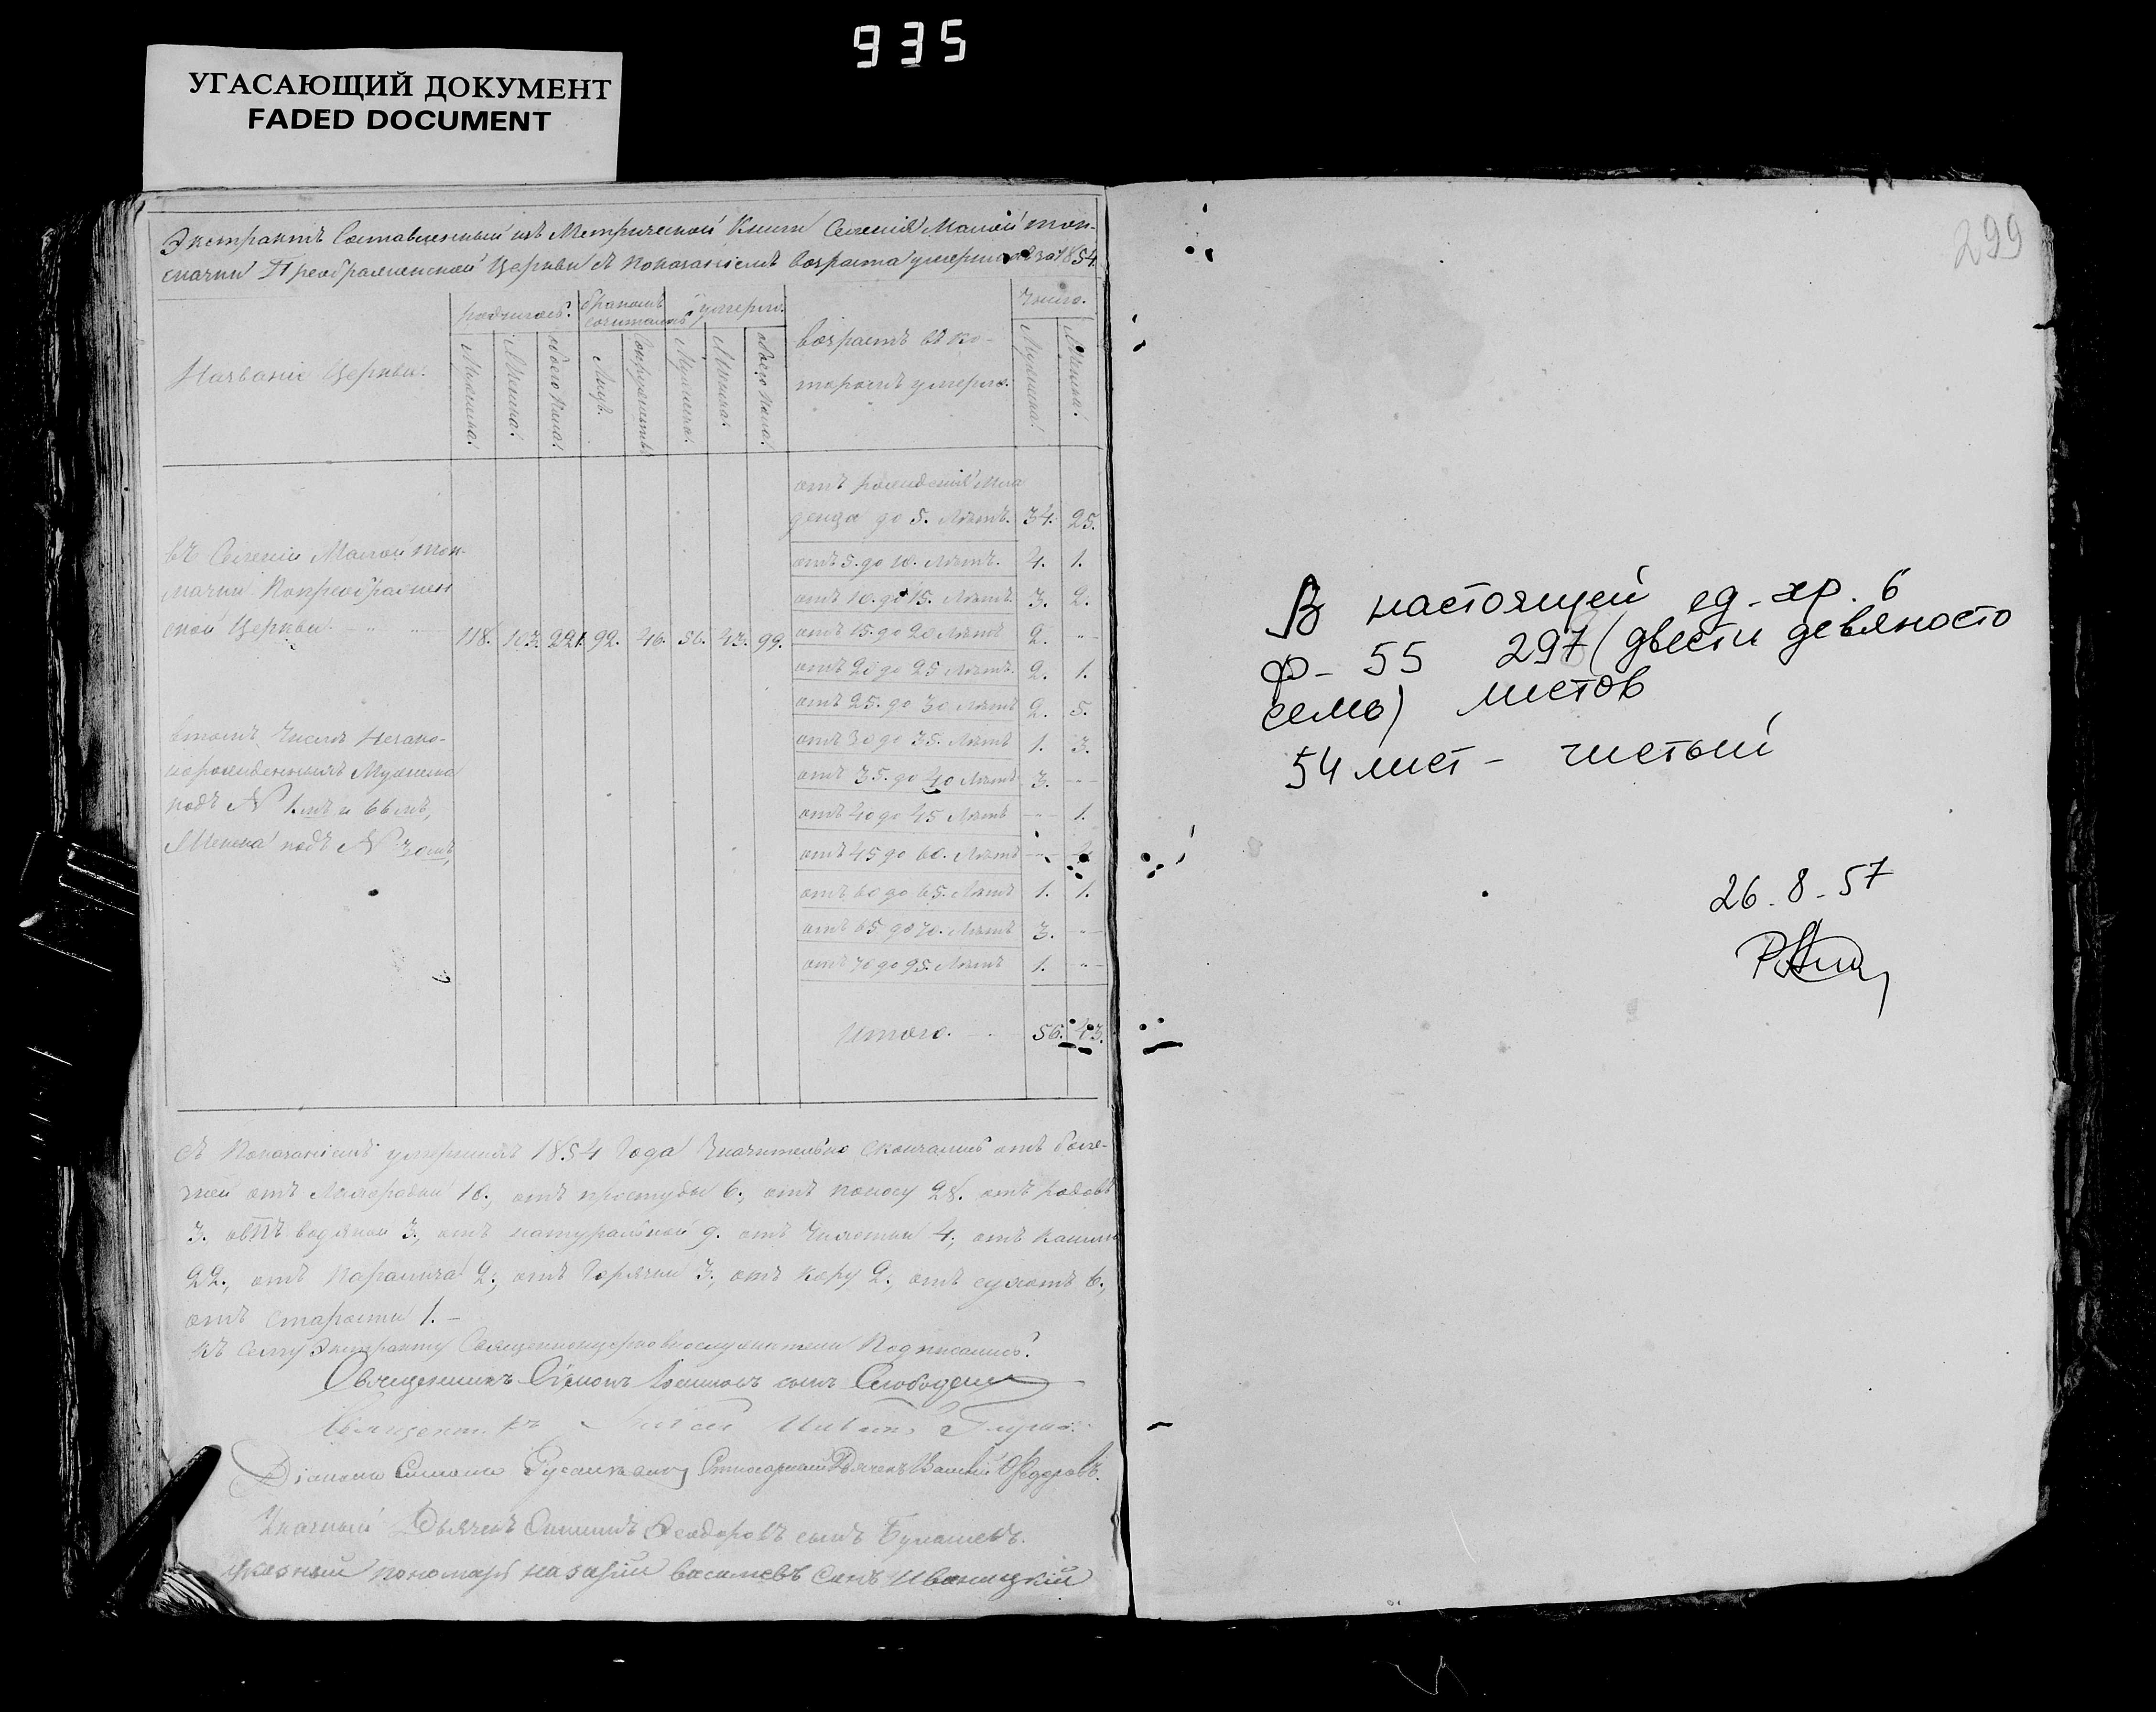 935
УГАСАЮЩИЙ ДОКУМЕНТ
FADED DOCUMENT
Экстрактъ Составленный изъ Метрической Книги Селенія Малой
Преображенской Церкви съ показаніемъ возраста за 1854
Названіе Церкви.
родилось.
бракомъ
умерло.
возрастъ въ ко-
торомъ умерло.
Число.
Мужеска.
Женска.
обоего пола.
Лицъ.
Супружествъ.
Мужеска.
Женска.
обоего пола.
Мужеска.
Женска.
въ Селеніи Малой
ской Церкви
118. 103. 221. 92. 46. 56. 43. 99.
втомъ Числѣ Незако-
норожденныхъ Мужеска
подъ № 1мъ и 66мъ,
Женска подъ № 30мъ,
отъ рожденія мла
денца до 5. Лѣтъ. 34. 25.
отъ 5. до 10. Лѣтъ. 4. 1.
отъ 10. до 15. Лѣтъ. 3. 2.
отъ 15. до 20 Лѣтъ 2. -"-
отъ 20 до 25 Лѣтъ. 2. 1.
отъ 25. до 30 Лѣтъ 2. 5.
отъ 30 до 35. Лѣтъ 1. 3.
отъ 35. до 40 Лѣтъ 3. -"-
отъ 40 до 45 Лѣтъ -"- 1.
отъ 45 до 60. Лѣтъ -"-
отъ 60 до 65. Лѣтъ 1. 1.
отъ 65 до 70. Лѣтъ 3. -"-
отъ 70 до 95. Лѣтъ 1. -"-
Итого. 56. 43.
Съ показаніемъ умершихъ 1854 Года Значительно скончались отъ боле-
зней отъ 10., отъ простуды 6., отъ поносу 28. отъ родовъ
3. отъ водяной 3., отъ натуральной 9. отъ Чахотки 4., отъ кашля
22., отъ паралича 2., отъ Горячки 3., отъ кору 2., отъ сухотъ 6.,
отъ старости 1. –
Къ Сему Экстракту Священноцерковнослужители Подписались.
Священникъ Сімонъ сынъ
Священникъ
Діаконъ Симеонъ Дьячекъ Василій Ѳедоровъ.
Указный Дьячекъ Ѳеодоровъ сынъ
указный пономарь назарій васильевъ сынъ Иваницкій
299
В настоящей ед. хр. 6
ф - 55 297 (двести девяносто
семь) листов
54 лист - чистый
26 - 8 - 57